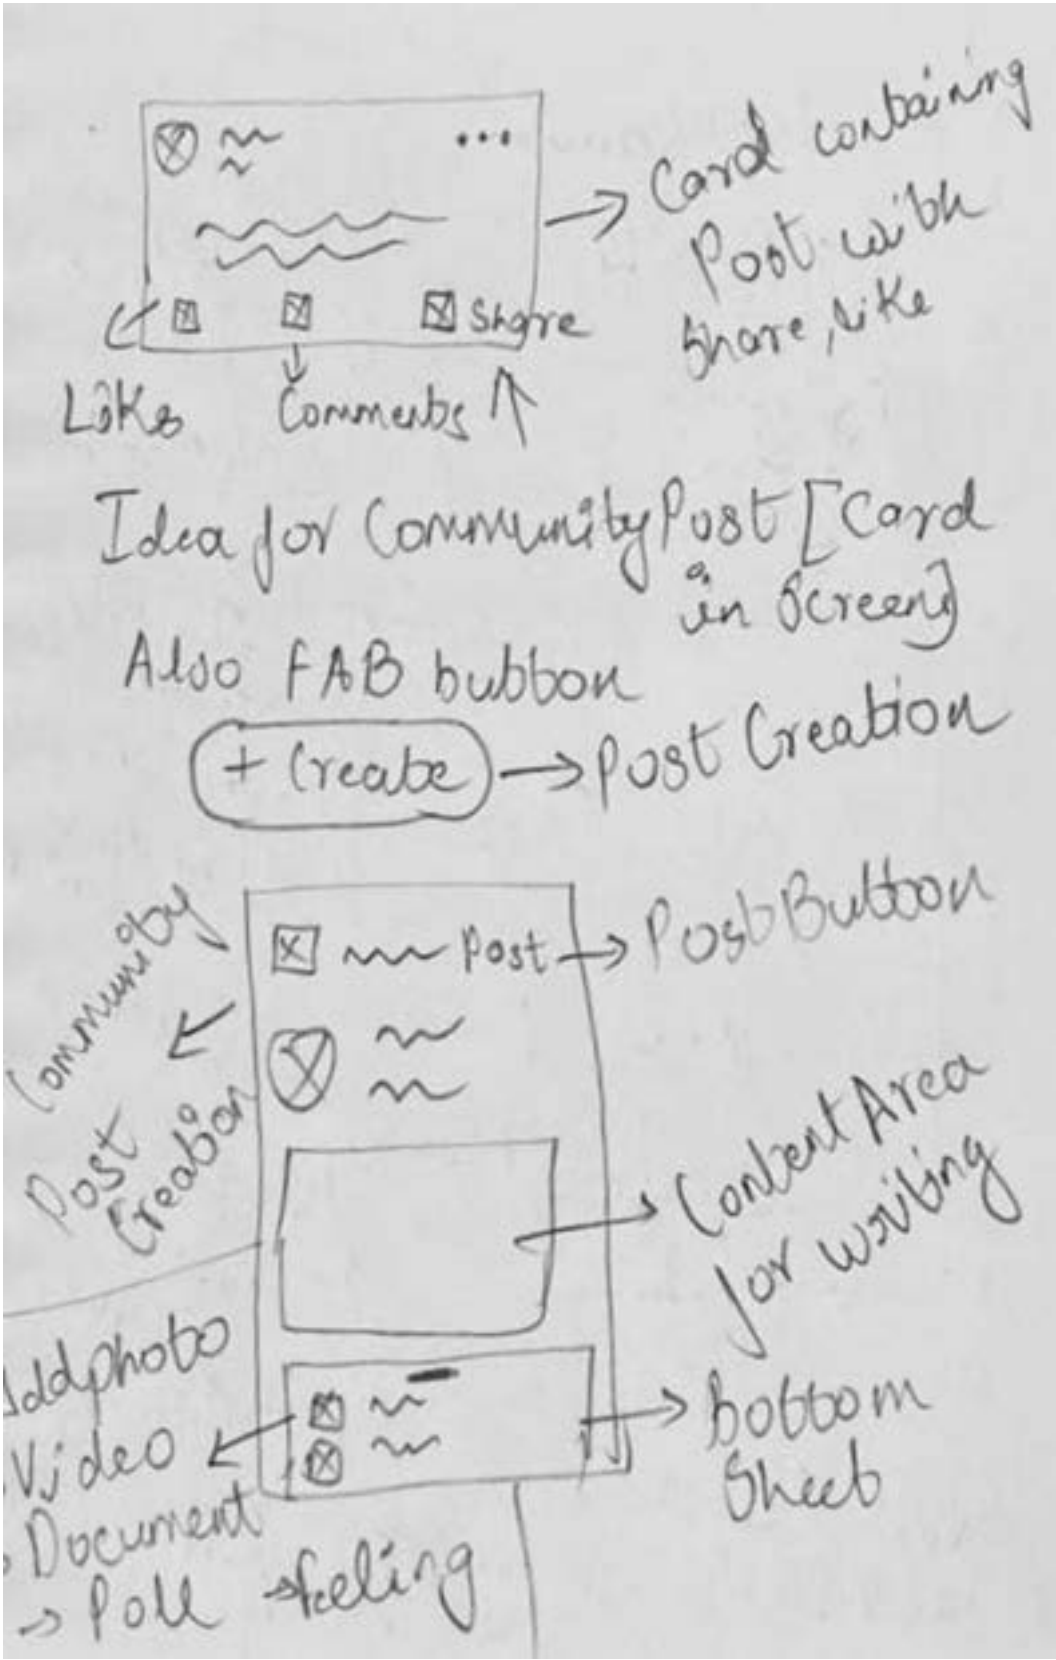 Card containing
Post with
Share, like
Share
Likes
Comments
Idea for Community Post [Card
in Screen]
Also FAB button
+ Create
Post Creation
Community
Post
Creation
Post
Post Button
Content Area
for writing
Add photo
Video
Document
→ Poll → feeling
Bottom
Sheet